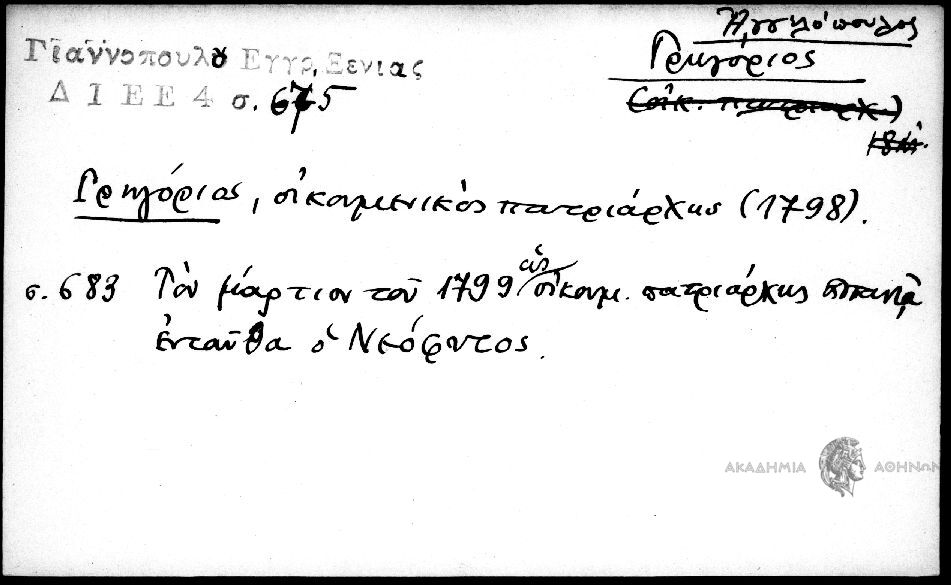 Ἀγγελόπουλος
Γρηγόριος
(οἰκ. πατριαρχ.)
Γιαννοπουλου Εγγρ. Ξενιας
ΔΙΕΕ 4 σ. 675
Γρηγόριος, οἰκουμενικὸς πατριάρχης (1798).
σ. 683 Τὸν μάρτιον τοῦ 1799 ὡς οἰκουμ. πατριάρχης
ἐνταῦθα ὁ Νεόφυτος.
ΑΚΑΔΗΜΙΑ ΑΘΗΝΩΝ